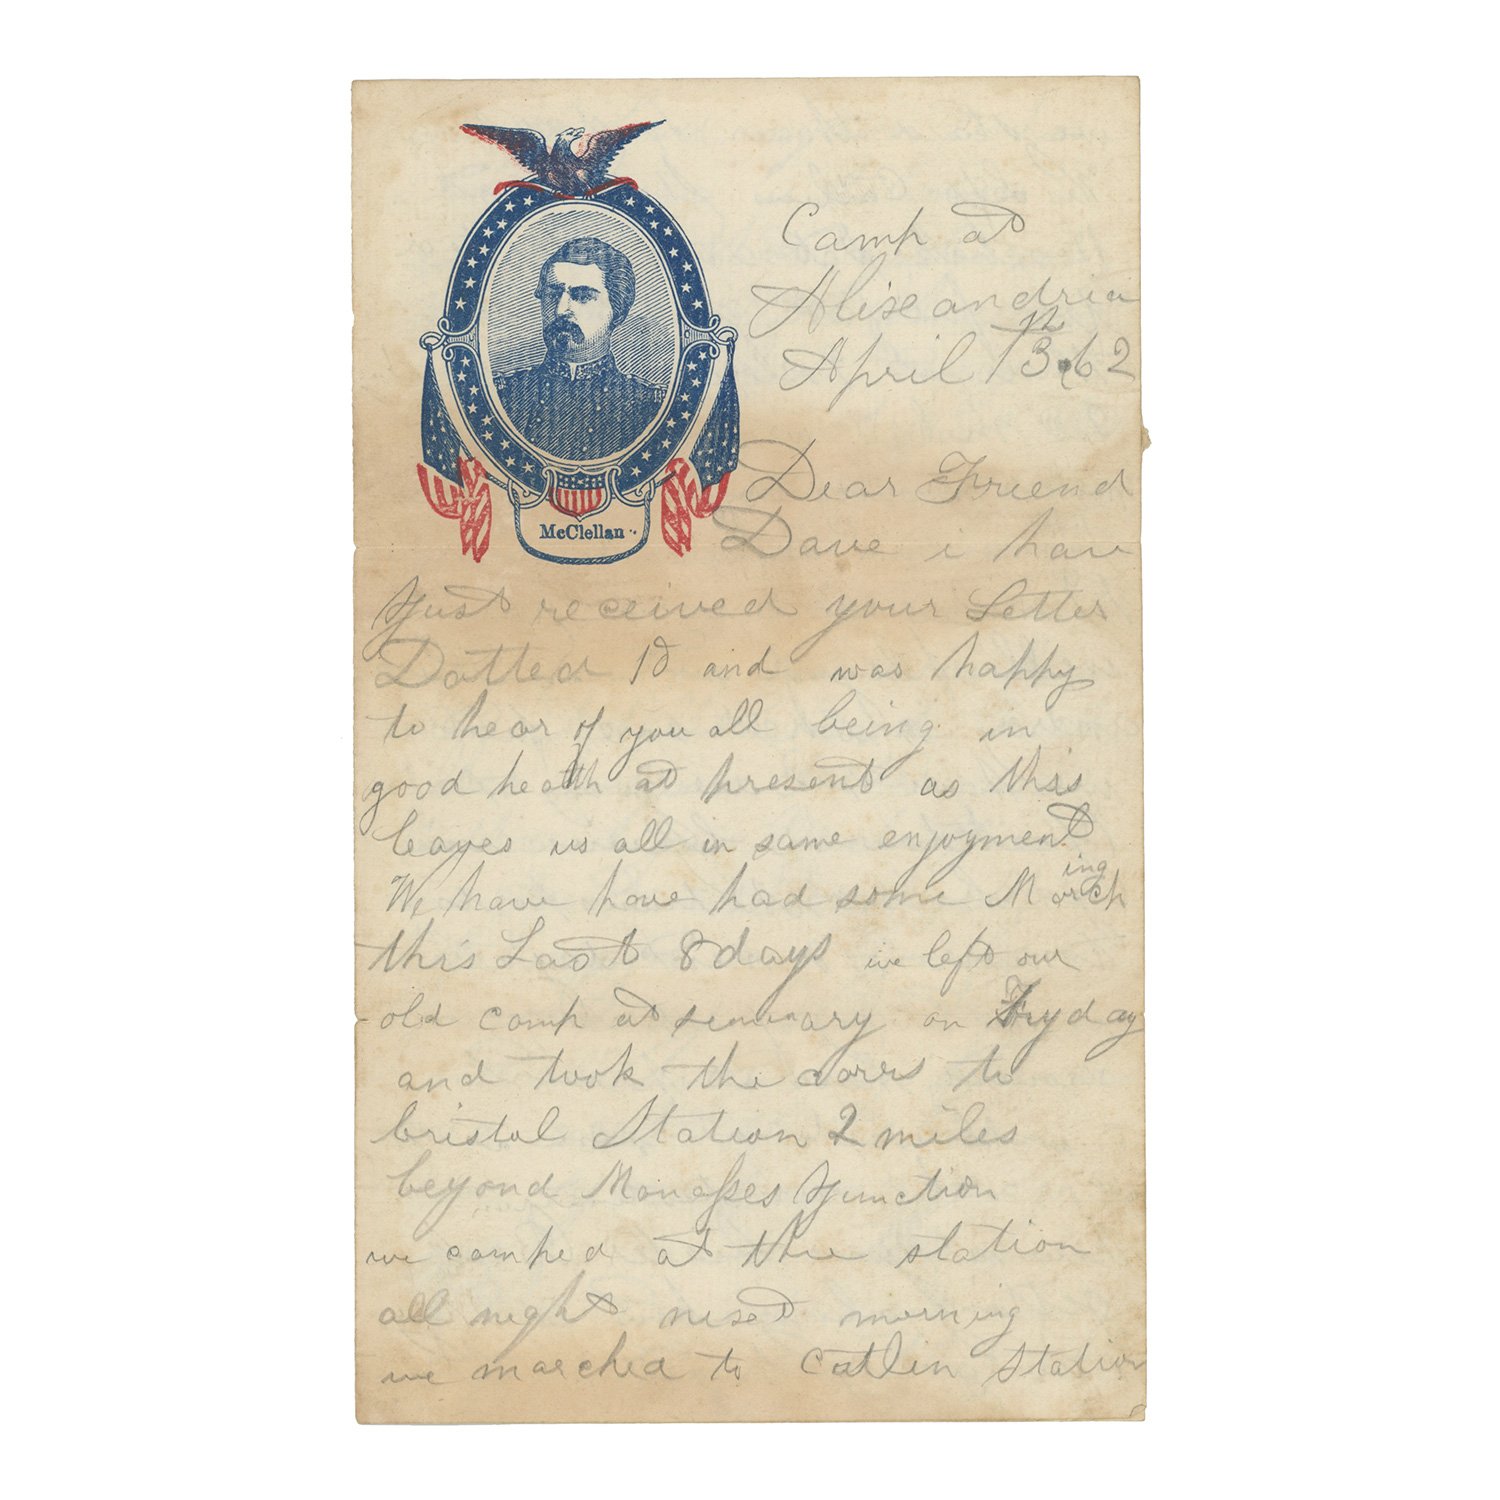 McClellan
Camp at
Alixeandria
April 13 62
Dear Friend
Dave i have
Just received your Letter
Datted 10 and was happy
to hear of you all being in
good health at present as this
leaves us all in same enjoyment
We have have had some Marching
this Last 8 days we left our
old camp at seminary on Fryday
and took the carrs to
bristol Station 2 miles
beyond Manesses Junction
we camped at the station
all night nixt morning
we marched to Catlin Station